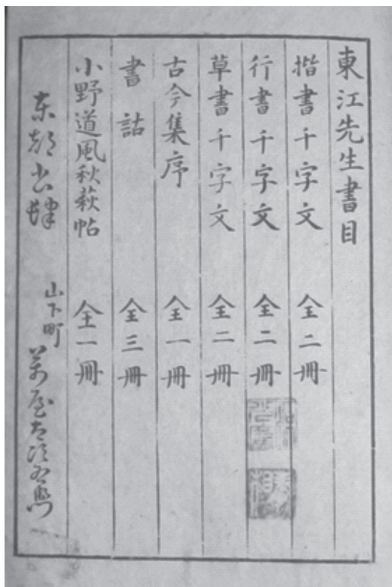 東江先生書目
揩書千字文 全二冊
行書千字文 全二冊
草書千字文 全二冊
古今集序 全一冊
書話 全三冊
小野道風秋萩帖 全一冊
东都书肆 山下町 萬屋太次右衛門